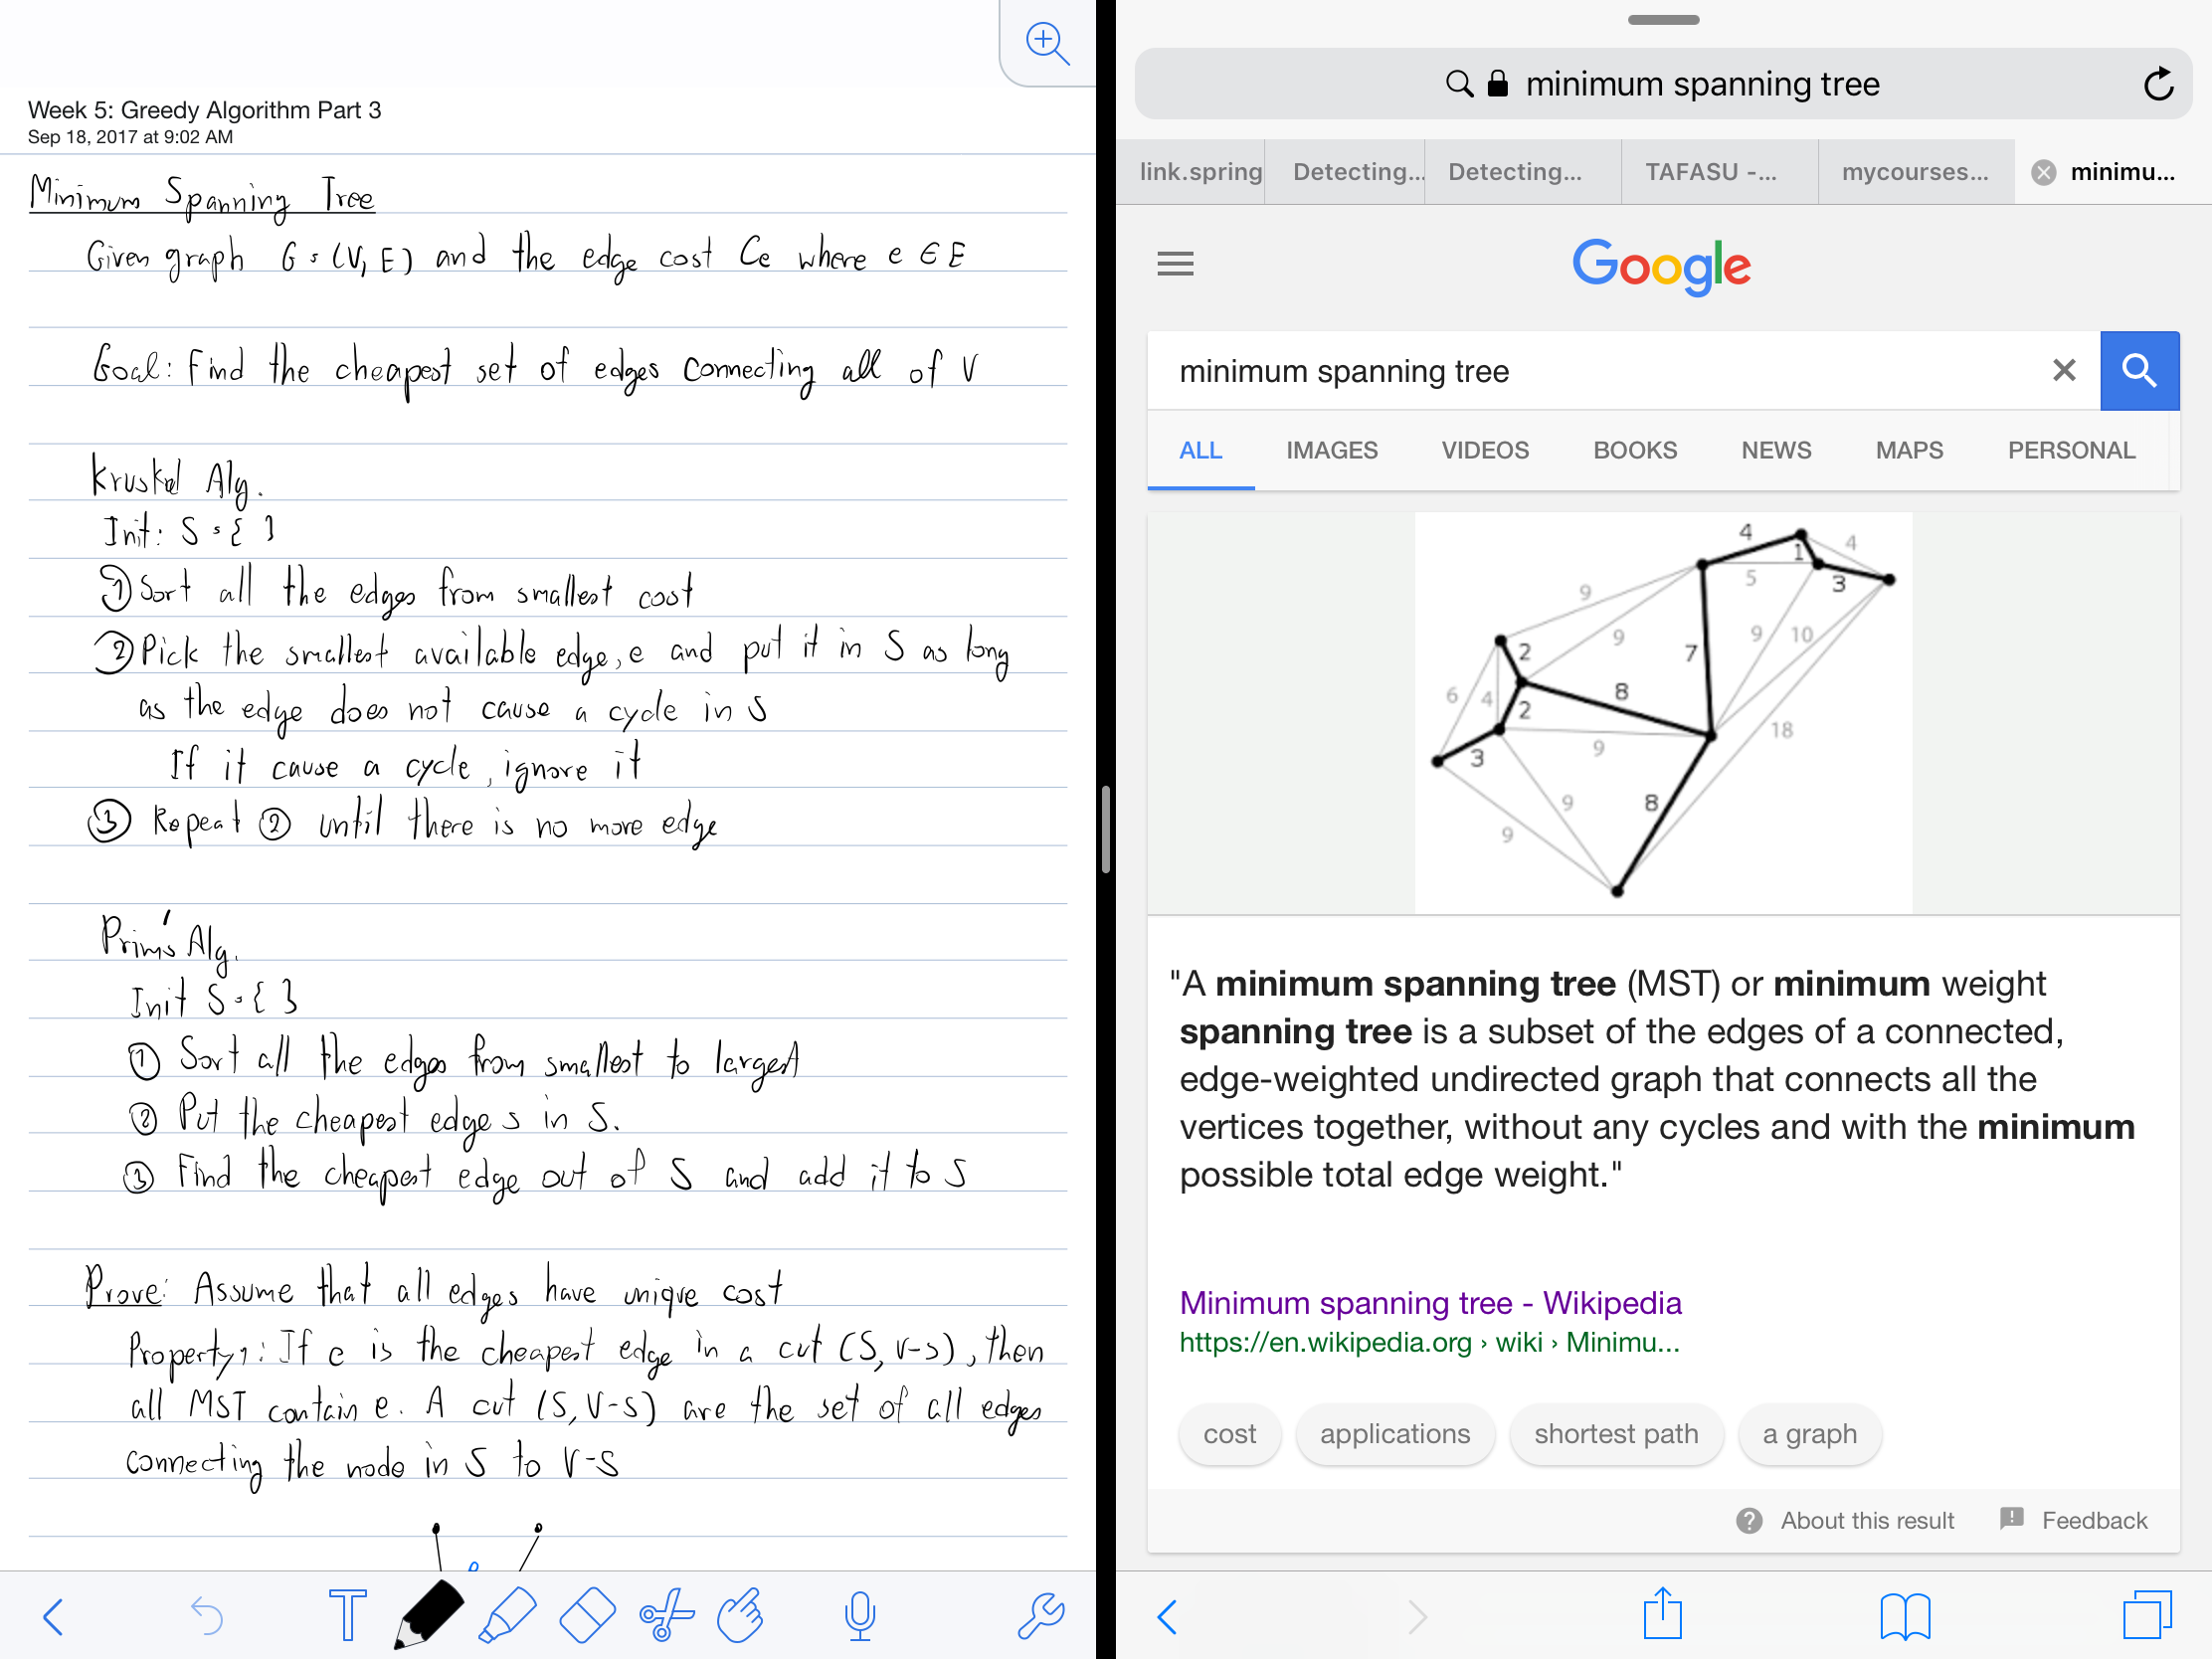 Week 5: Greedy Algorithm Part 3
Sep 18, 2017 at 9:02 AM
Minimum Spanning Tree
Given graph G = (V, E) and the edge cost Ce where e ∈ E
Goal: Find the cheapest set of edges connecting all of V
Kruskal Alg.
Init: S = { }
① Sort all the edges from smallest cost
② Pick the smallest available edge, e and put it in S as long
as the edge does not cause a cycle in S
If it cause a cycle, ignore it
③ Repeat ② until there is no more edge
Prim's Alg.
Init S = { }
① Sort all the edges from smallest to largest
② Put the cheapest edge s in S.
③ Find the cheapest edge out of S and add it to S
Prove: Assume that all edges have unique cost
Property 1: If e is the cheapest edge in a cut (S, V-S), then
all MST contain e. A cut (S, V-S) are the set of all edges
connecting the node in S to V-S
e
T
minimum spanning tree
link.spring
Detecting...
Detecting...
TAFASU -...
mycourses...
minimu...
Google
minimum spanning tree
ALL IMAGES VIDEOS BOOKS NEWS MAPS PERSONAL
4
1
4
5
3
9
9
9
10
2
7
6
4
8
2
18
3
9
9
8
9
"A minimum spanning tree (MST) or minimum weight
spanning tree is a subset of the edges of a connected,
edge-weighted undirected graph that connects all the
vertices together, without any cycles and with the minimum
possible total edge weight."
Minimum spanning tree - Wikipedia
https://en.wikipedia.org › wiki › Minimu...
cost applications shortest path a graph
About this result Feedback